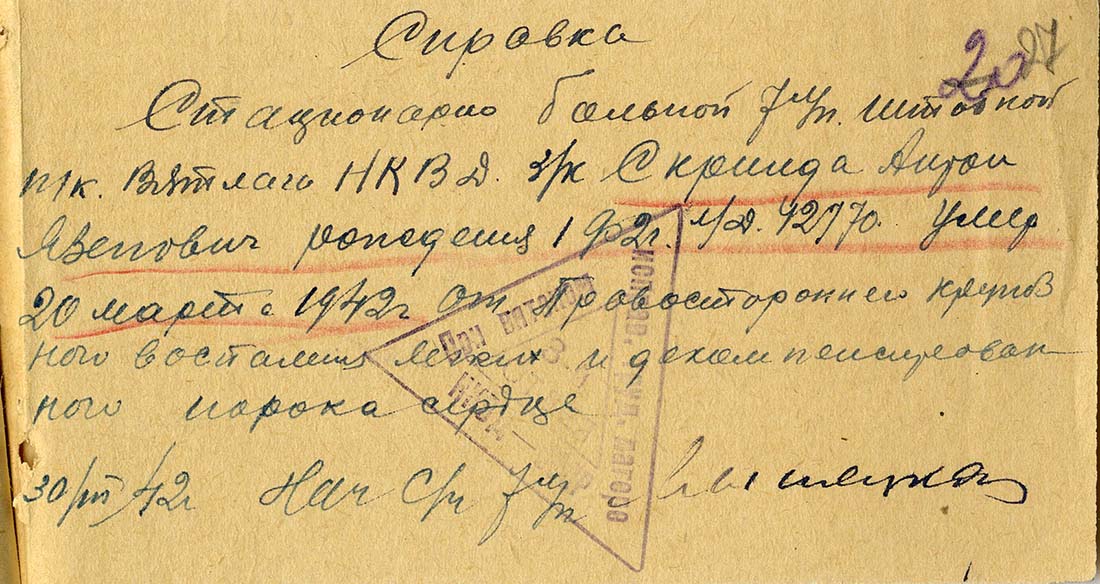 27
20
Справка
Стационарно больной 7 л/п. штовной
п/к. Вятлага НКВД. з/к Скринда Антон
Язепович рождения 1902г. л/д. 42770. умер
20 марта 1942г от Правостороннего крупоз
ного воспаления легких и декомпенсирован
ного порока сердце
30/III 42г Нач С/ч 7 л/п
исправ. труд. лагере
При вятском
НКВД